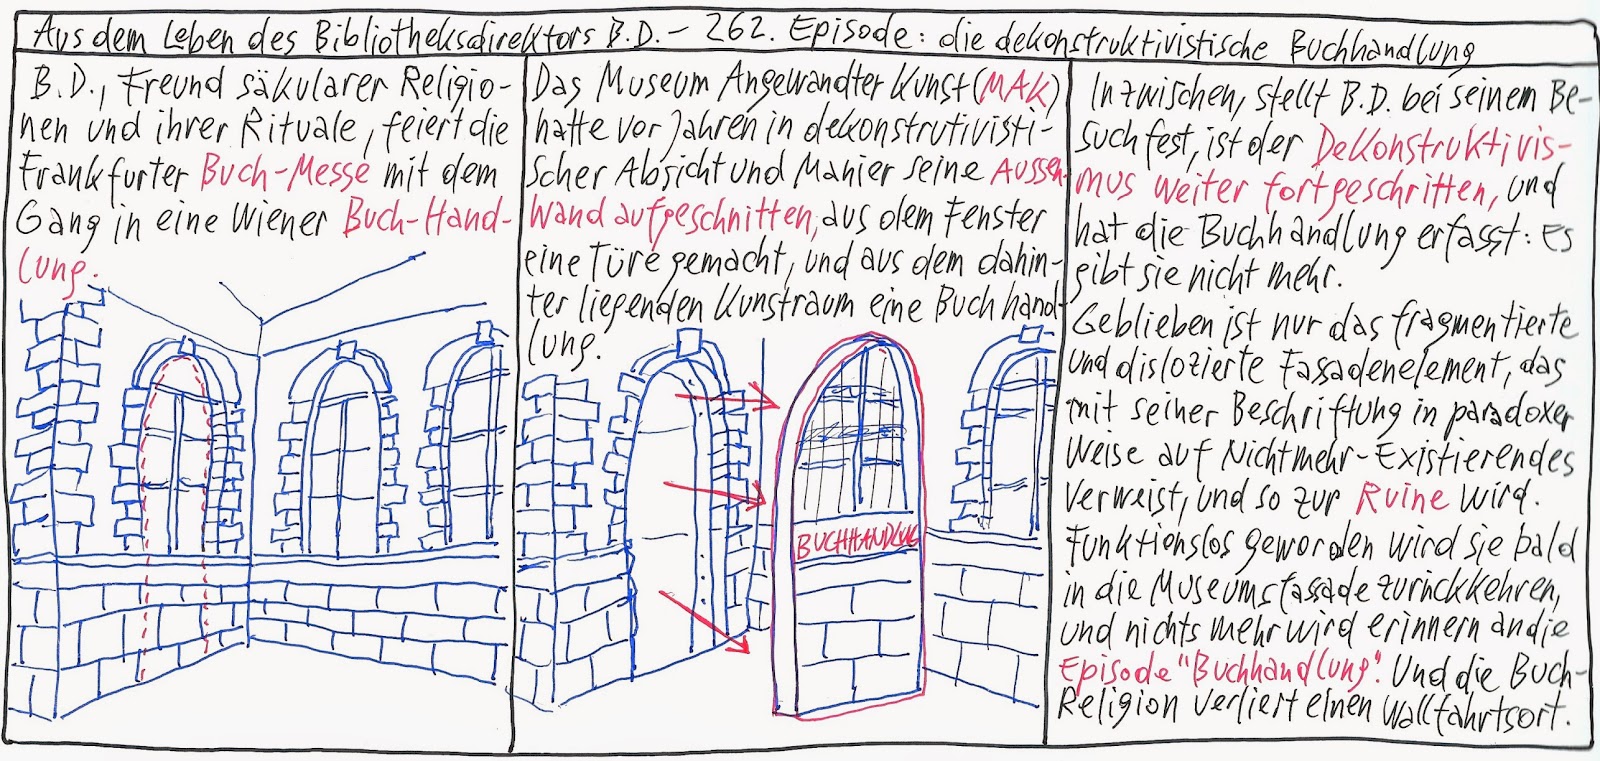 Aus dem Leben des Bibliotheksdirektors B.D. – 262. Episode: die dekonstruktivistische Buchhandlung
B.D., Freund säkularer Religio-
nen und ihrer Rituale, feiert die
Frankfurter Buch-Messe mit dem
Gang in eine Wiener Buch-Hand-
lung.
Das Museum Angewandter Kunst (MAK)
hatte vor Jahren in dekonstrutivisti-
scher Absicht und Manier seine Aussen-
wand aufgeschnitten, aus dem Fenster
eine Türe gemacht, und aus dem dahin-
ter liegenden Kunstraum eine Buchhand-
lung.
BUCHHANDLUG
Inzwischen, stellt B.D. bei seinem Be-
such fest, ist der Dekonstruktivis-
mus weiter fortgeschritten, und
hat die Buchhandlung erfasst: Es
gibt sie nicht mehr.
Geblieben ist nur das fragmentierte
und dislozierte Fassadenelement, das
mit seiner Beschriftung in paradoxer
Weise auf Nichtmehr-Existierendes
verweist, und so zur Ruine wird.
Funktionslos geworden wird sie bald
in die Museumsfassade zurückkehren,
und nichts mehr wird erinnern an die
Episode "Buchhandlung". Und die Buch-
Religion verliert einen Wallfahrtsort.